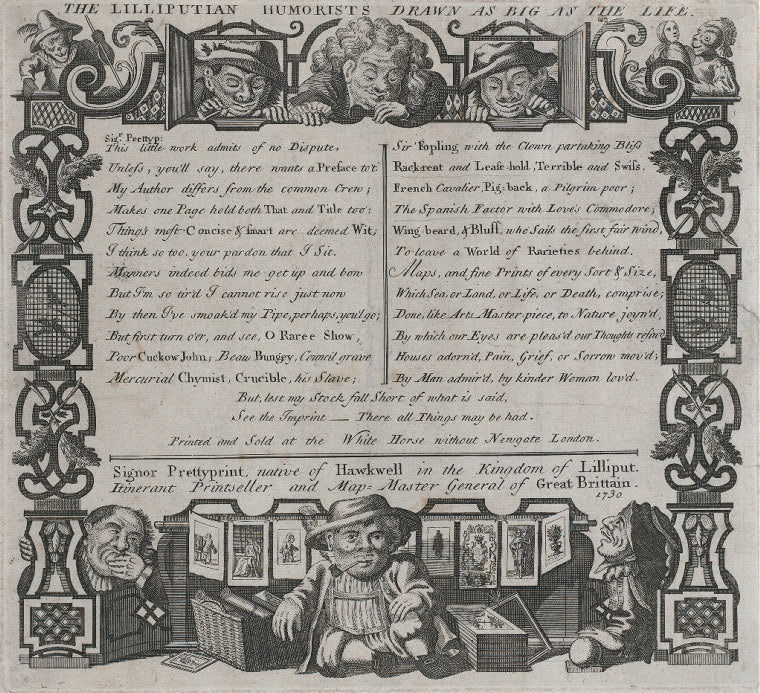 THE LILLIPUTIAN HUMORISTS DRAWN AS BIG AS THE LIFE.
Sigr. Prettyp:
This little work admits of no Dispute,
Unless, you'll say, there wants a Preface to't.
My Author differs from the common Crew;
Makes one Page hold both That and Title too:
Things most Concise & smart are deemed Wit;
I think so too, your pardon that I Sit.
Manners indeed bids me get up and bow
But I'm so tir'd I cannot rise just now
By then I've smoak'd my Pipe, perhaps, you'l go;
But first turn o'er, and see, O Raree Show,
Poor Cuckow John, Beau Bungey, Council grave
Mercurial Chymist, Crucible, his Slave;
Sir Fopling with the Clown partaking Bliss
Rack-rent and Lease-hold, Terrible and Swiss.
French Cavalier, Pig-back, a Pilgrim poor;
The Spanish Factor with Love's Commodore;
Wing-beard, & Bluff, who Sails the first fair wind,
To leave a World of Rarieties behind.
Maps, and fine Prints of every Sort & Size,
Which Sea, or Land, or Life, or Death, comprise;
Done, like Arts Master-piece, to Nature joyn'd,
By which our Eyes are pleas'd our Thoughts refin'd
Houses adorn'd, Pain, Grief, or Sorrow mov'd;
By Man admir'd, by kinder Woman lov'd.
But, lest my Stock fall Short of what is said,
See the Imprint — There all Things may be had.
Printed and Sold at the White Horse without Newgate London.
Signor Prettyprint, native of Hawkwell in the Kingdom of Lilliput.
Itinerant Printseller and Map=Master General of Great Brittain.
1730